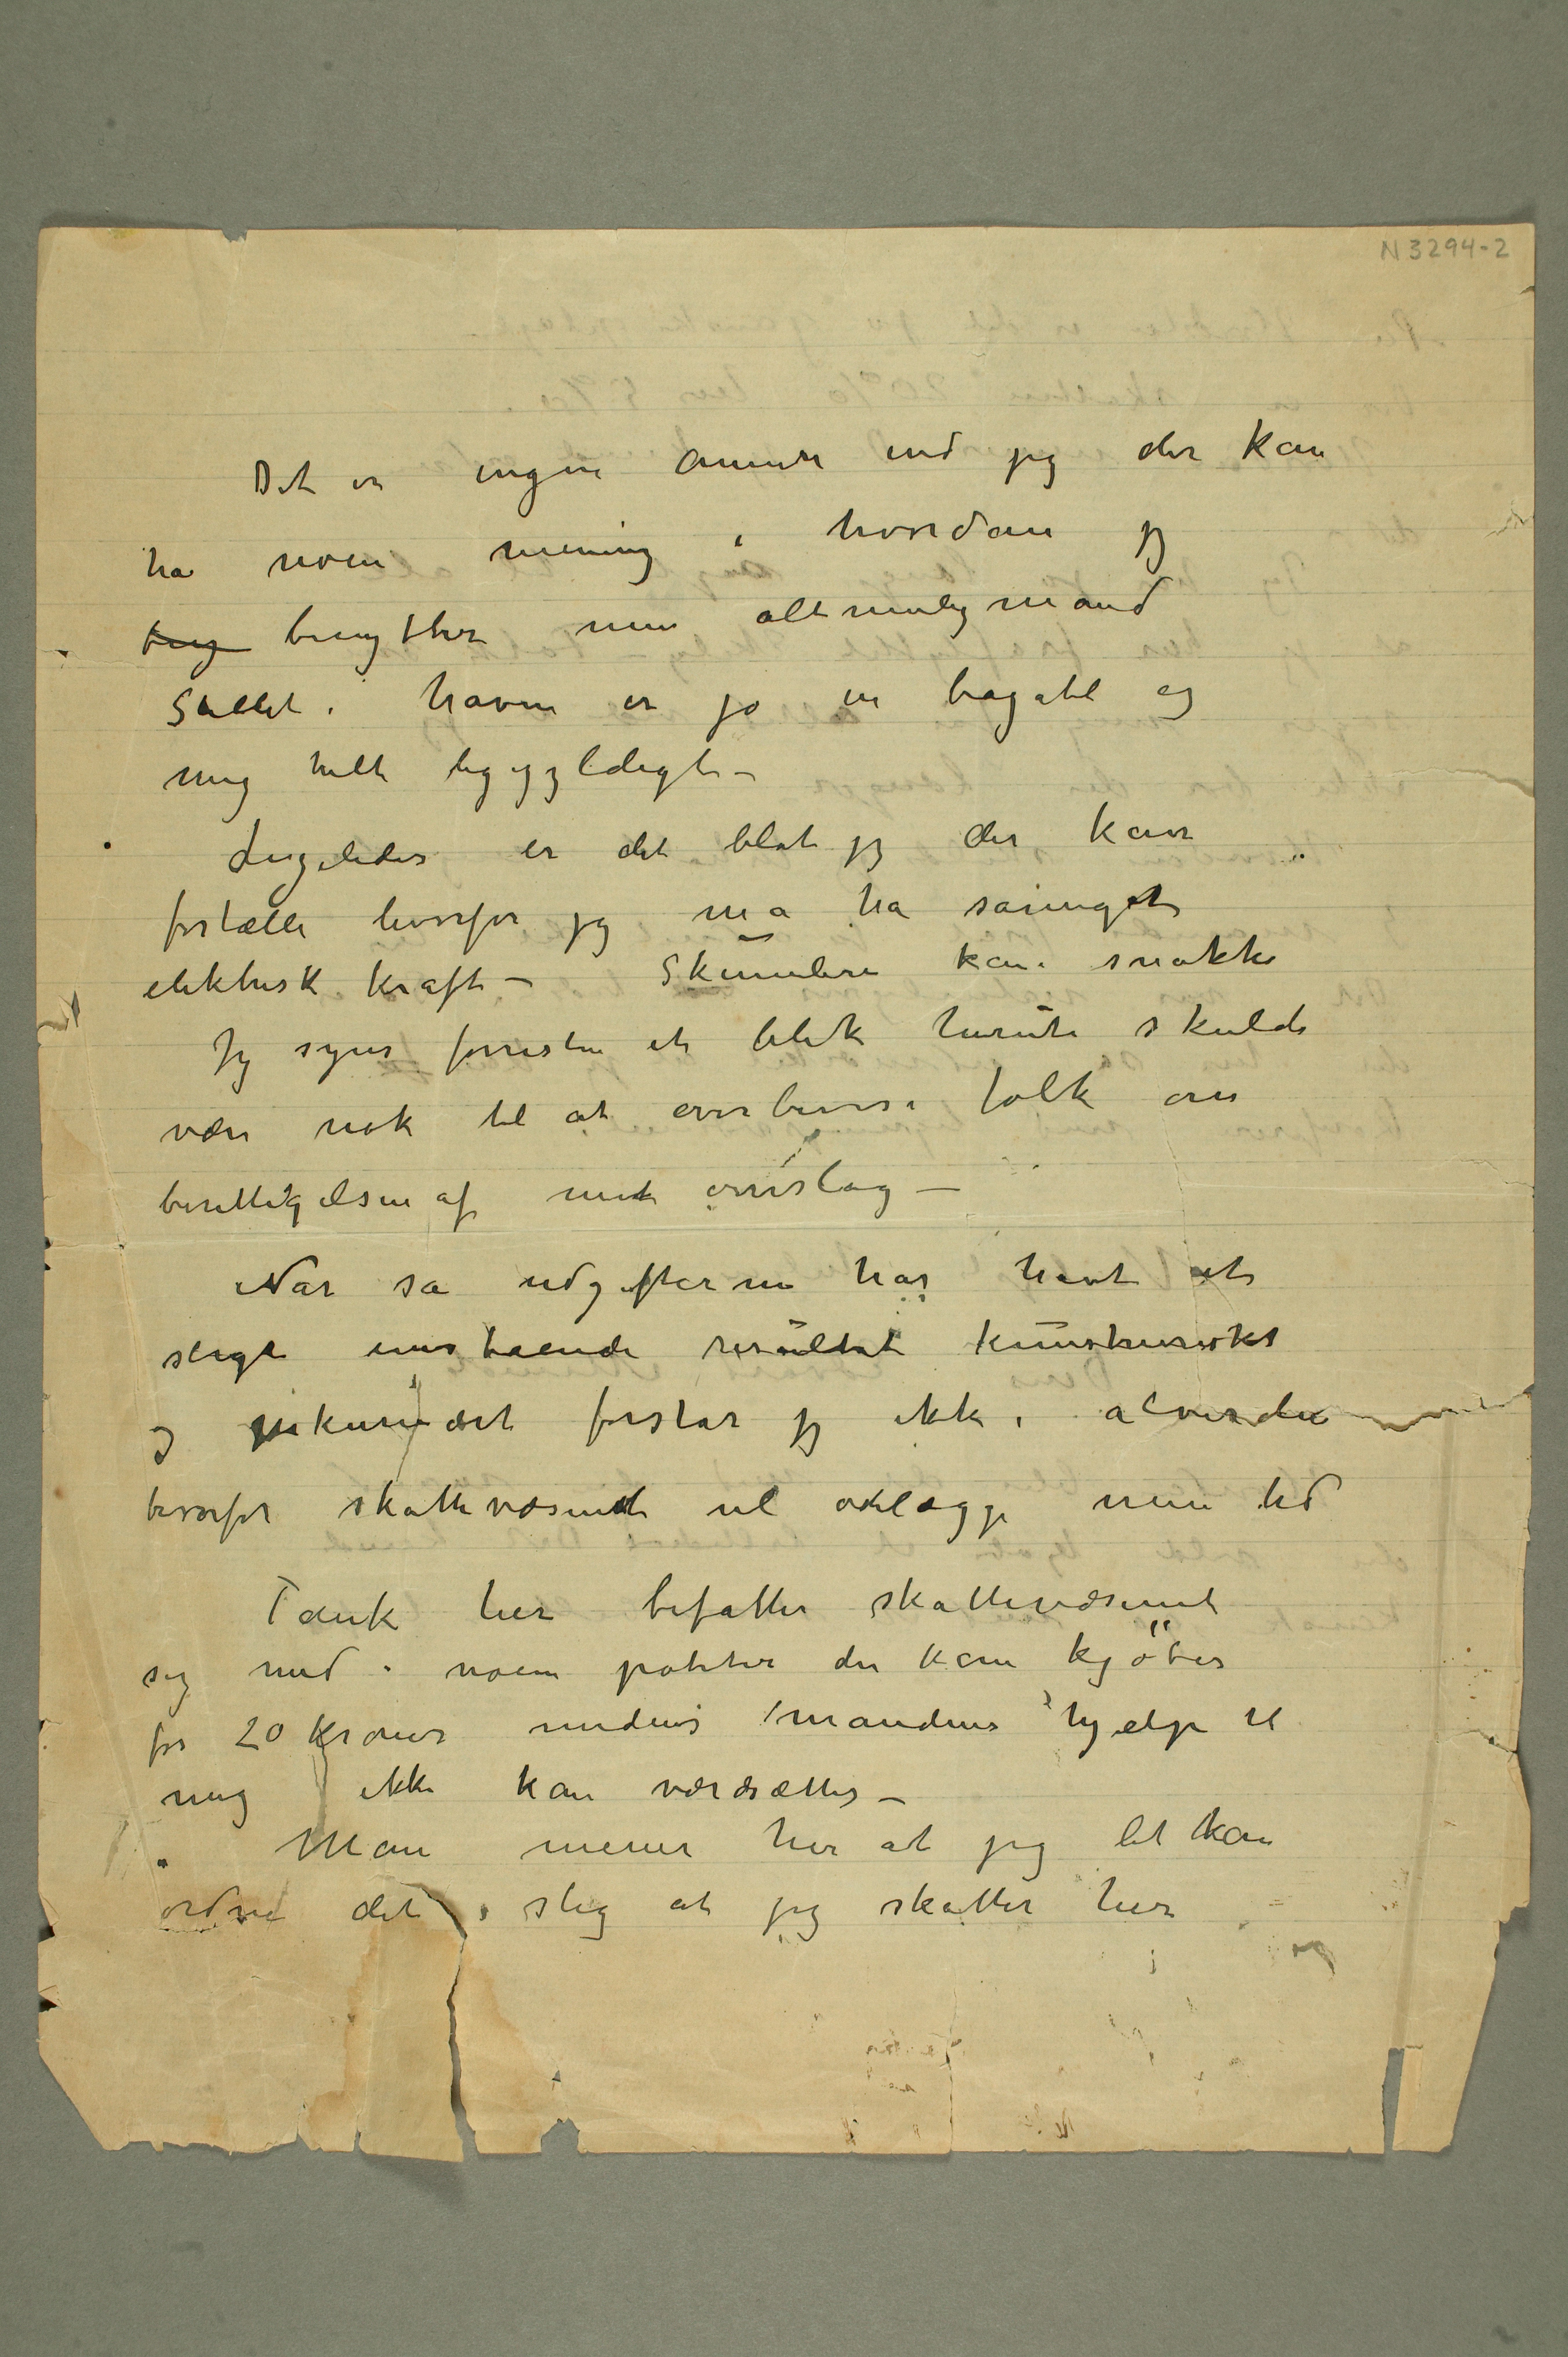 N 3294-2
Det er ingen annen end jeg der kan
ha noen mening i hvordan jeg
beny benytter min altmuligmand
Stellet i haven er jo en bagatel og
mig helt ligegyldigt –
Ligeledes er det blot jeg der kan
fortælle hvorfor jeg må ha såmeget
elektrisk kraft – Skumlere kan snakke
Jeg synes forresten et blik herute skulde
være nok til at overbevise folk om
berettigelsen af mit overslag –
Når så udgifterne har havt et
sligt enestaaende resultat kunstnerisk
og pekuniært forstår jeg ikke i alverden
hvorfor skattevæsenet vil ødelægge min tid
Tænk her befatter skattevæsenet
sig med noen poteter der kan kjøbes
for 20 kroner medens mandens hjælp til
mig ikke kan værdsættes –
Man mener her at jeg let kan
ordne det slig at jeg skatter her